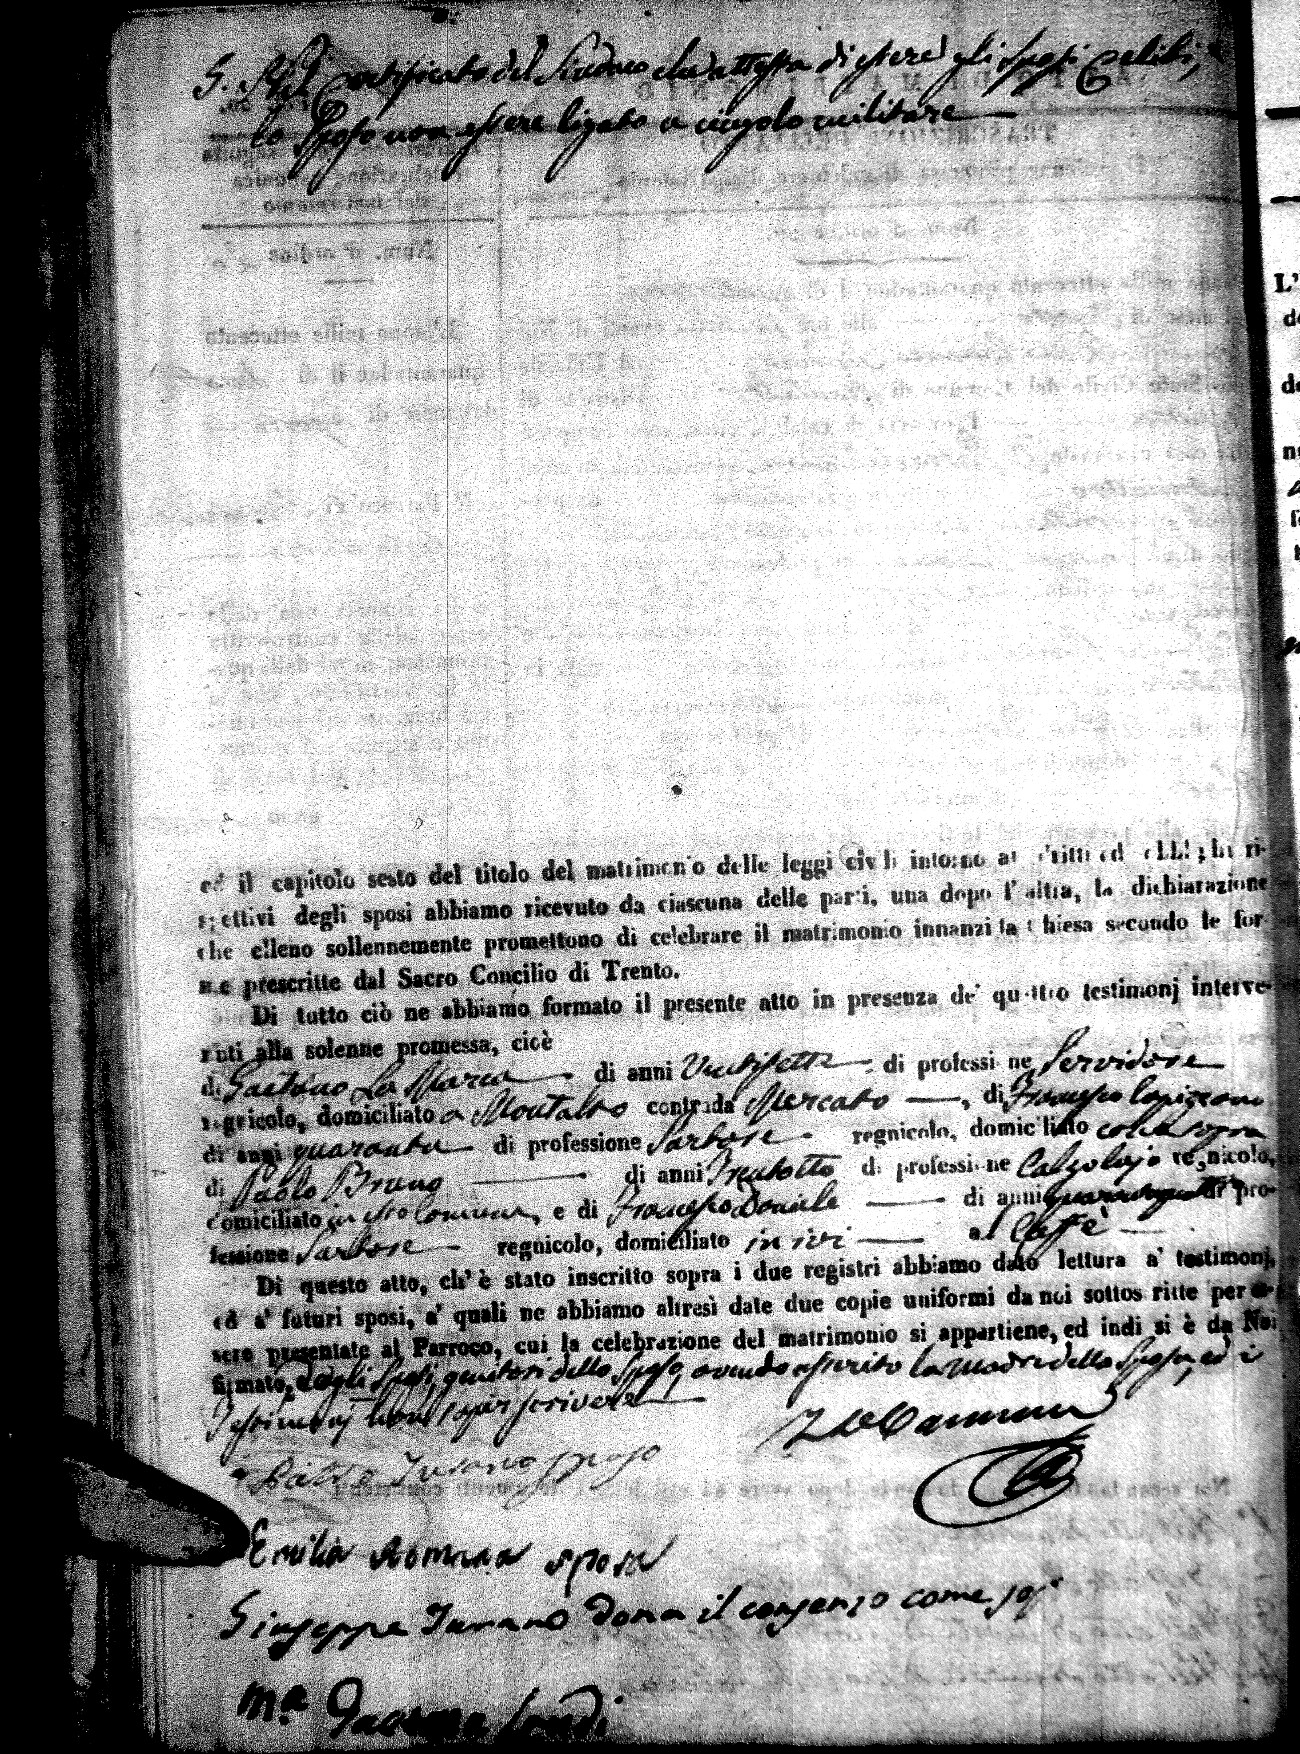 Certificato del Sindaco che attesta di essere gli sposi celibi, e
lo sposo non essere ligato a cingolo militare
ed il capitolo sesto del titolo del matrimonio delle leggi civili intorno ai dritti ed obblighi ri-
spettivi degli sposi abbiamo ricevuto da ciascuna delle parti, una dopo l' altra, la dichiarazione
che elleno sollennemente promettono di celebrare il matrimonio innanzi la Chiesa secondo le for-
me prescritte dal Sacro Concilio di Trento.
Di tutto ciò ne abbiamo formato il presente atto in presenza de' quattro testimonj interve-
nuti alla solenne promessa, cioè
di Gaetano La Marca di anni Ventisette di professione Servidore
regnicolo, domiciliato a Montalto contrada Mercato, di Francesco
di anni quaranta di professione Sartore regnicolo, domiciliato come sopra
di Paolo Bruno di anni Trentotto di professione Calzolajo regnicolo,
domiciliato in sto Comune, e di Francesco Donale di anni di pro-
fessione Sartore regnicolo, domiciliato in ivi al Caffè
Di questo atto, ch' è stato inscritto sopra i due registri abbiamo dato lettura a' testimonj,
ed a' futuri sposi, a' quali ne abbiamo altresì date due copie uniformi da noi sottoscritte per es-
sere presentate al Parroco, cui la celebrazione del matrimonio si appartiene, ed indi si è da Noi
firmato, dagli Sposi, genitori dello Sposo, avendo asserito la madre dello Sposo, ed i
Testimonj non saper scrivere
Turano sposo
Emilia Romana sposa
Giuseppe Turano Dona il conzenzo come
M.a Gaetana Londi